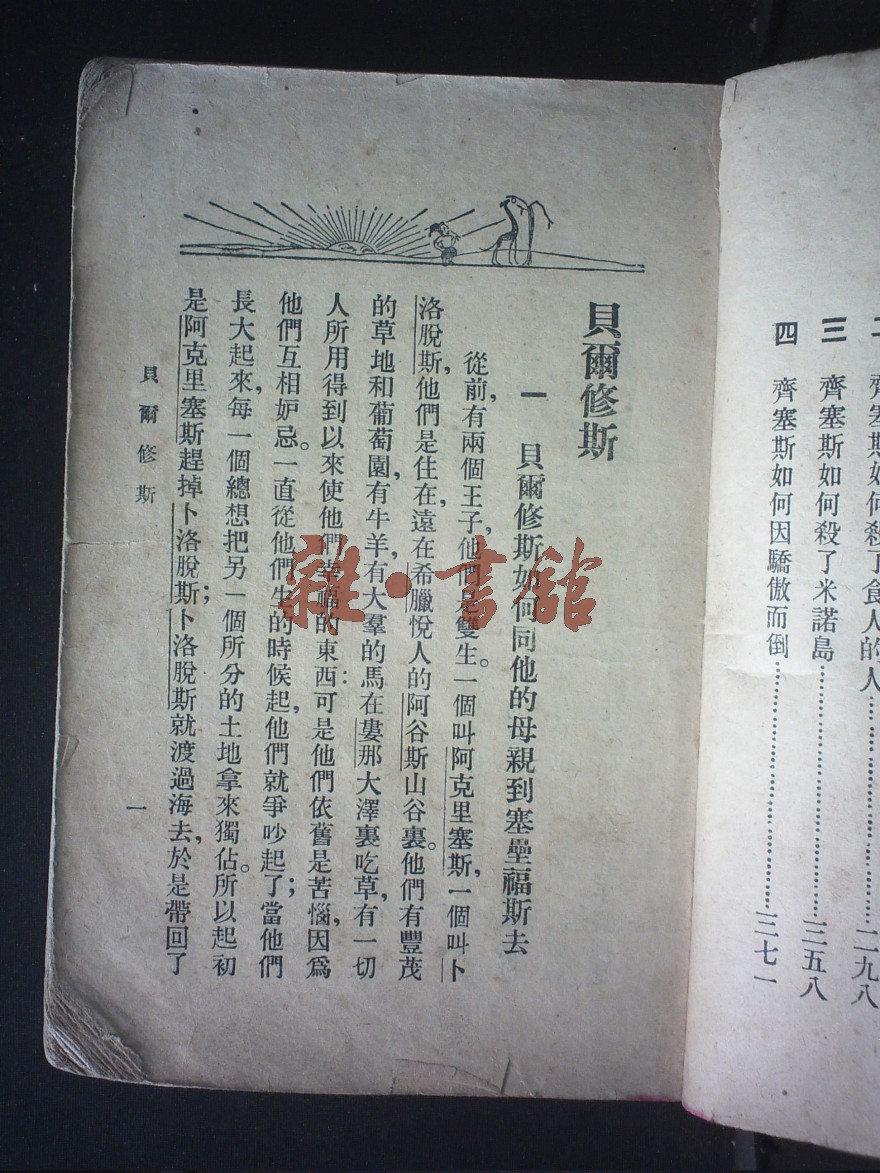 二 齊塞斯如何殺了食人的人……二九八
三 齊塞斯如何殺了米諾島……三五八
四 齊塞斯如何因驕傲而倒……三七一
貝爾修斯
一 貝爾修斯如何同他的母親到塞壘福斯去
從前,有兩個王子,他們是雙生。一個叫阿克里塞斯,一個叫卜
洛脫斯,他們是住在,遠在希臘悅人的阿谷斯山谷裏。他們有豐茂
的草地和葡萄園,有牛羊,有大羣的馬在婁那大澤裏吃草,有一切
人所用得到以來使他們幸福的東西:可是他們依舊是苦惱,因爲
他們互相妒忌。一直從他們生的時候起,他們就爭吵起了;當他們
長大起來,每一個總想把另一個所分的土地拿來獨佔。所以起初
是阿克里塞斯趕掉卜洛脫斯;卜洛脫斯就渡過海去,於是帶回了
貝爾修斯
一
雜·書館